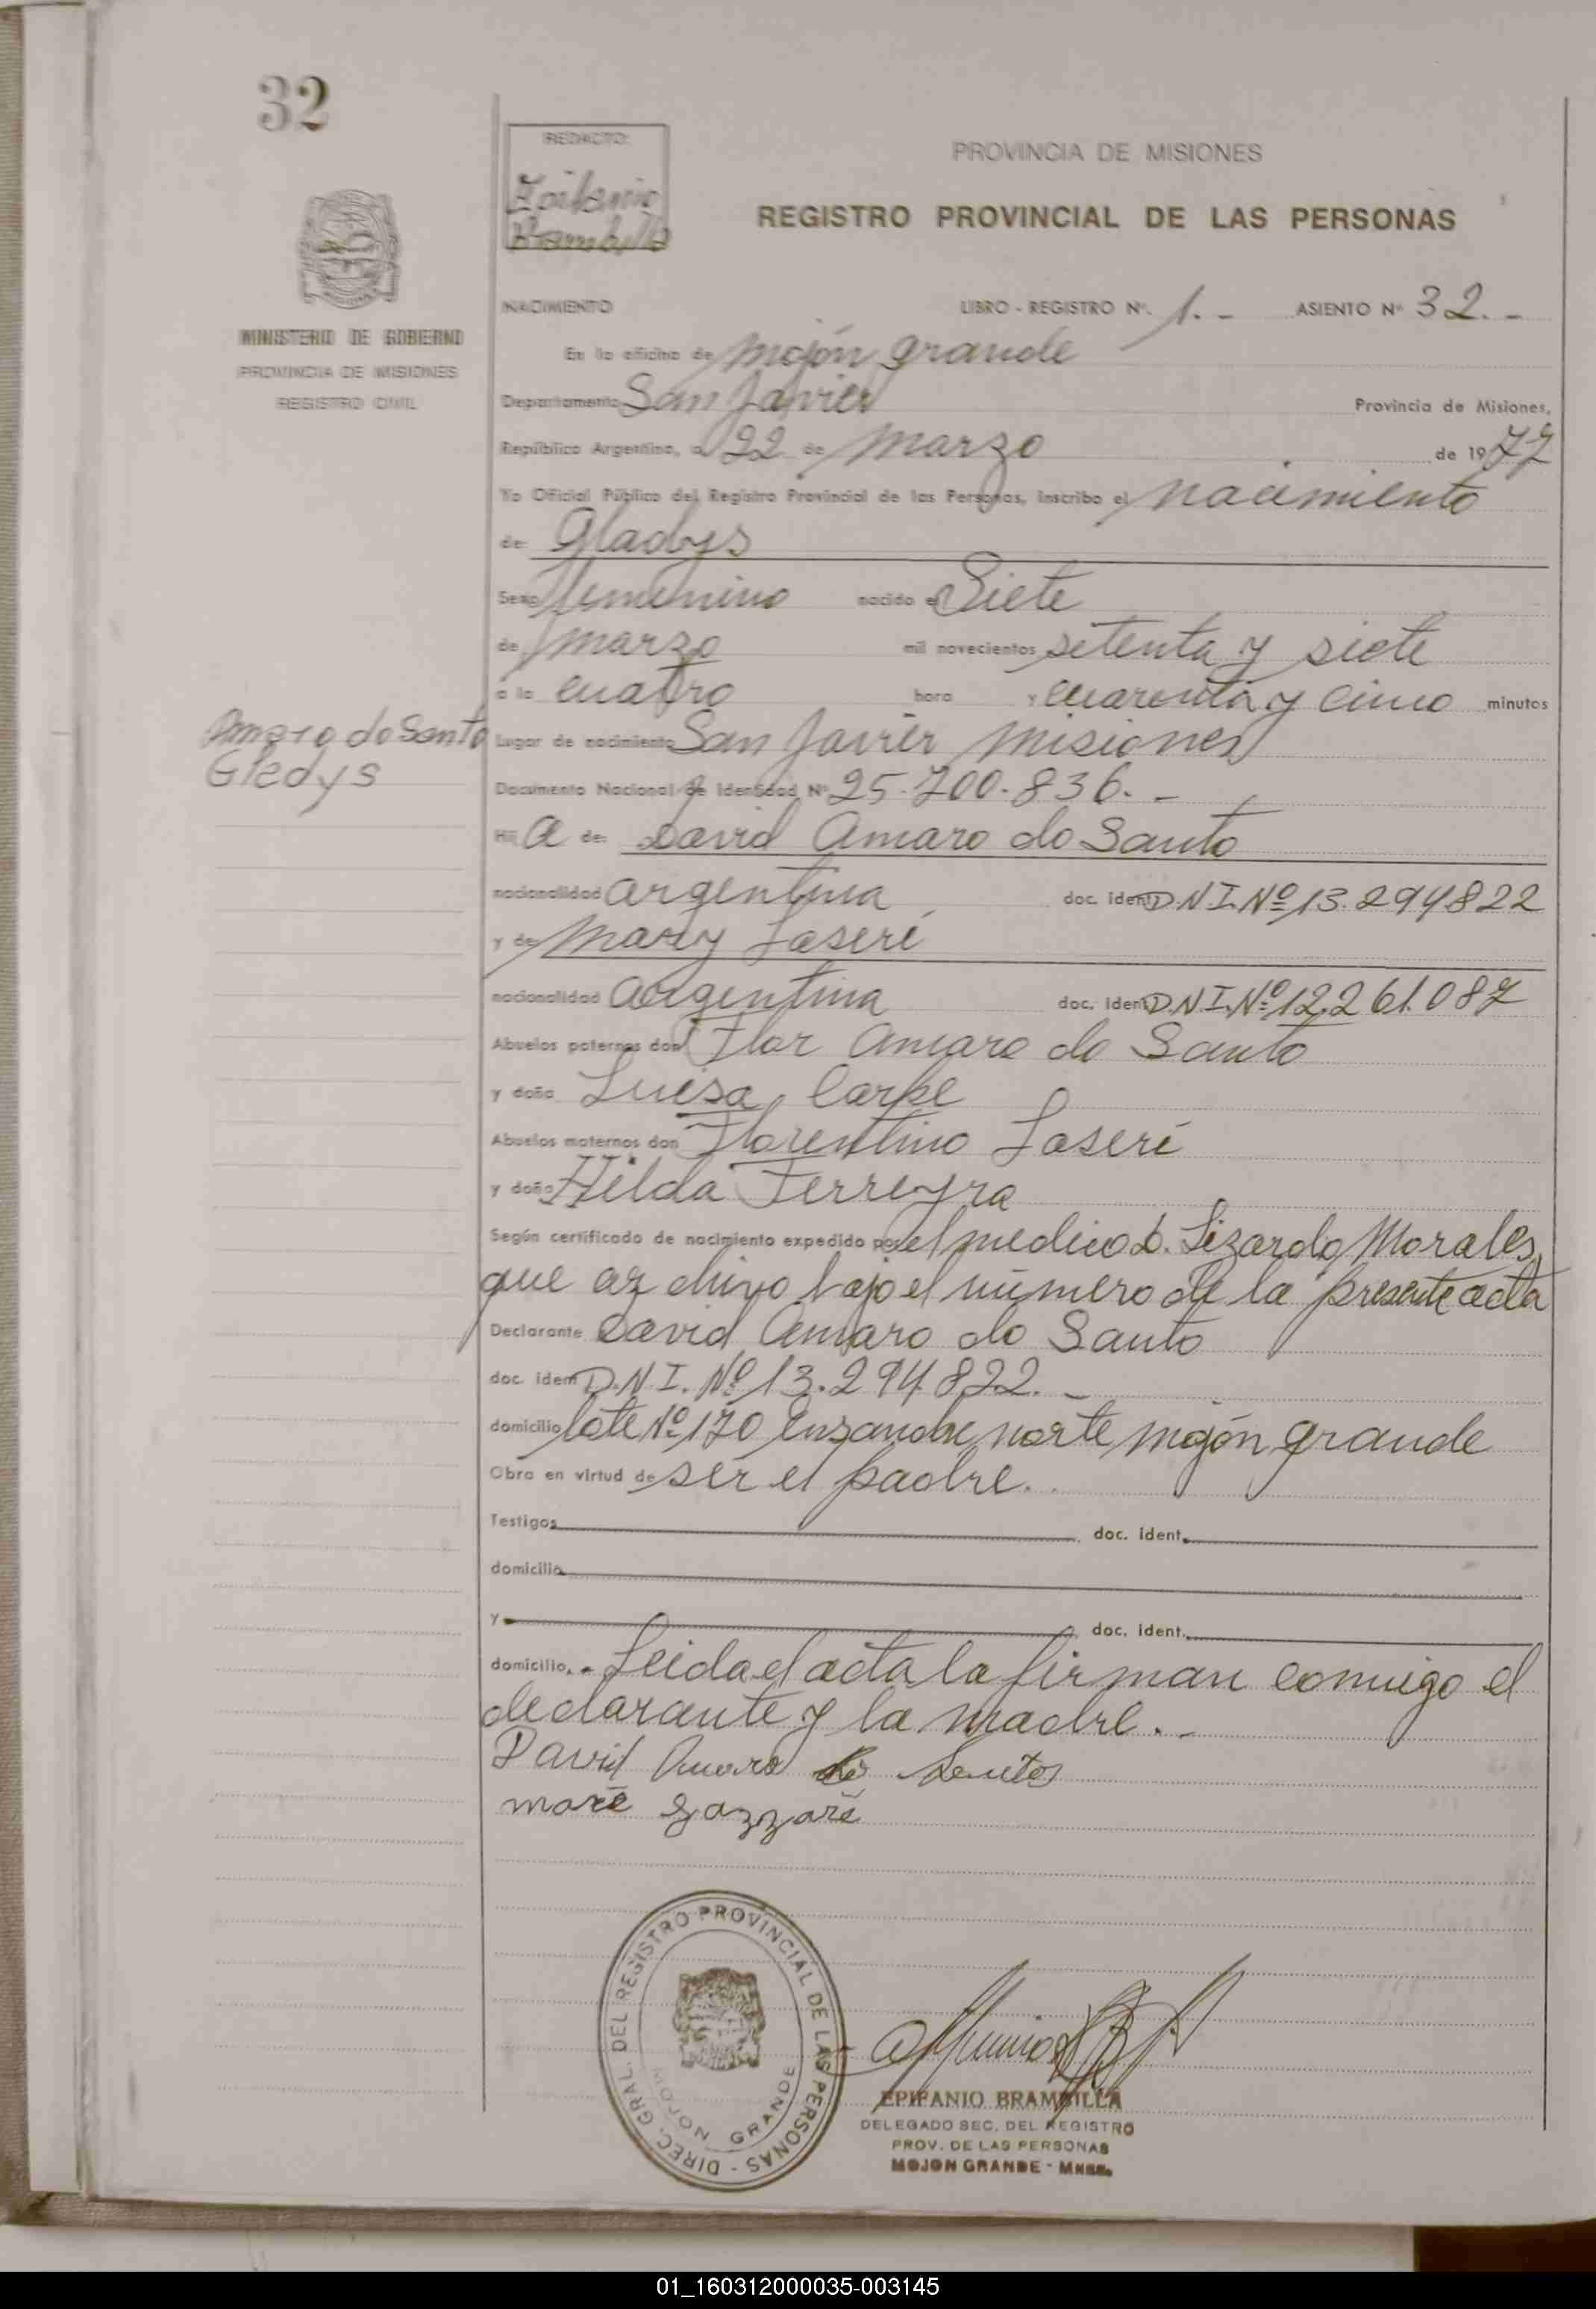 32
REDACTO:
Epifanio
Brambilla
PROVINCIA DE MISIONES
REGISTRO PROVINCIAL DE LAS PERSONAS
MINISTERIO DE GOBIERNO
PROVINCIA DE MISIONES
REGISTRO CIVIL
NACIMIENTO LIBRO - REGISTRO Nº. 1. - ASIENTO Nº 32. -
En la oficina de mojón grande
Departamento San Javier Provincia de Misiones,
República Argentina, a 22 de marzo de 1977
Yo Oficial Público del Registro Provincial de las Personas, inscribo el nacimiento
de Gladys
Sexo femenino nacido el Siete
de marzo mil novecientos setenta y siete
a la cuatro hora y cuarenta y cinco minutos
Amaro do Santo
Gladys
Lugar de nacimiento San Javier misiones
Documento Nacional de Identidad Nº 25.700.836. -
Hij a de: David Amaro do Santo
nacionalidad argentina doc. ident D.N.I. Nº 13.294822
y de Mary Laseré
nacionalidad argentina doc. ident D.N.I. Nº 12.261.087
Abuelos paternos don Flor Amaro do Santo
y doña Luisa Carpe
Abuelos maternos don Florentino Laseré
y doña Hilda Ferreyra
Según certificado de nacimiento expedido por el medico D. Lizardo Morales,
que archivo bajo el número de la presente acta
Declarante David Amaro do Santo
doc. ident D.N.I. Nº 13.294.822. -
domicilio lote Nº 170 Enzanche norte mojón grande
Obra en virtud de ser el padre.
Testigos doc. ident.
domicilio
y doc. ident.
domicilio. - Leida el acta la firman conmigo el
declarante y la madre. -
David Amaro do Santos
mare gazzare
DIREC. GRAL. DEL REGISTRO PROVINCIAL DE LAS PERSONAS -
MOJON GRANDE
EPIFANIO BRAMBILLA
DELEGADO SEC. DEL REGISTRO
PROV. DE LAS PERSONAS
MOJON GRANDE - Mnes.
01_160312000035-003145